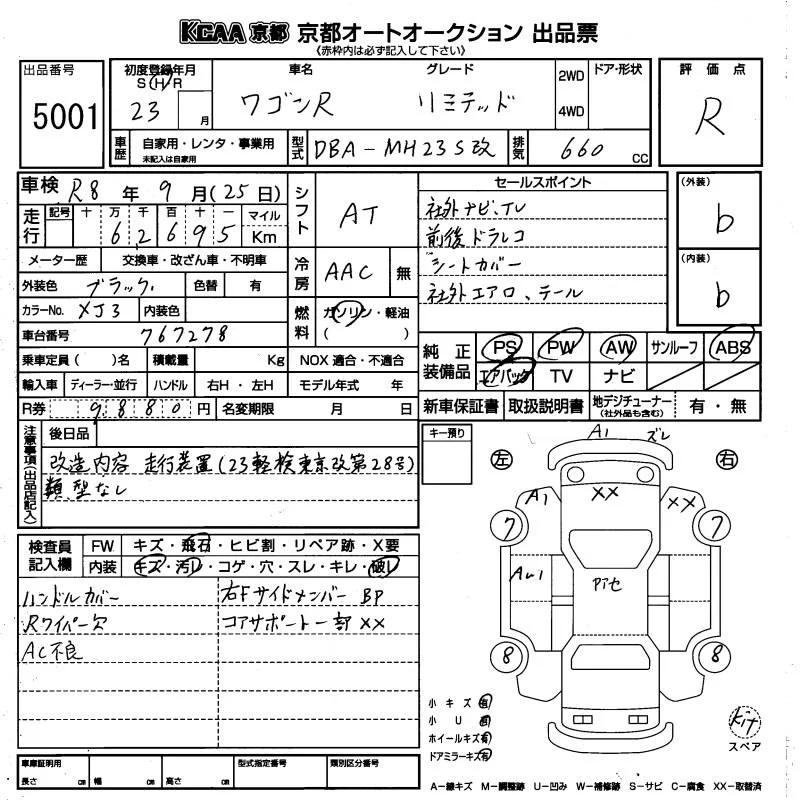 KCAA 京都 京都オートオークション 出品票
《赤枠内は必ず記入して下さい》
出品番号
5001
初度登録年月
S(H)R
23 月
車名
ワゴンR
グレード
リミテッド
2WD
4WD
ドア・形状
評価点
R
車歴
自家用・レンタ・事業用
未記入は自家用
型式
DBA-MH23S改
排気
660 CC
車検 R8 年 9 月(25日)
走行
記号 十 万 千 百 十 一 マイル
6 2 6 9 5 Km
メーター歴 交換車・改ざん車・不明車
外装色 ブラック 色替 有
カラーNo. XJ3 内装色
車台番号 767278
乗車定員( )名 積載量 Kg
輸入車 ディーラー・並行 ハンドル 右H・左H
R券 9880 円 名変期限 月 日
シフト
AT
冷房
AAC 無
燃料
ガソリン・軽油
( )
NOX 適合・不適合
モデル年式 年
セールスポイント
社外ナビ、TV
前後ドラレコ
シートカバー
社外エアロ、テール
(外装)
b
(内装)
b
純正装備品
PS PW AW サンルーフ ABS
エアバック TV ナビ
新車保証書 取扱説明書 地デジチューナー (社外品も含む) 有・無
注意事項(出品店記入)
後日品
改造内容 走行装置(23軽検東京改第28号)
類型なし
検査員記入欄
FW キズ・飛石・ヒビ割・リペア跡・X要
内装 キズ・汚レ・コゲ・穴・スレ・キレ・破レ
ハンドルカバー
Rワイパー欠
AC不良
右Fサイドメンバー BP
コアサポート一部 XX
キー預り
左
右
A1 ズレ
XX
A1
XX
7
7
AU1
アセ
8
8
小キズ有
小U有
ホイールキズ有
ドアミラーキズ有
kit
スペア
車庫証明用
長さ cm 幅 cm 高さ cm
型式指定番号
類別区分番号
A-線キズ M-調整跡 U-凹み W-補修跡 S-サビ C-腐食 XX-取替済